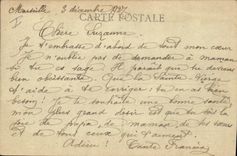 Marseille 3 décembre 1937
CARTE POSTALE
Chère Suzanne.
Je t'embrasse d'abord de tout mon cœur
Je n'oublie pas de demander à maman
si tu es sage. Il paraît que tu deviens
bien obéissante. Que la Sainte Vierge
t'aide à te corriger; tu en as bien
besoin! Je te souhaite une bonne santé,
mon plus grand désir est que tu sois la
joie de papa, de maman, de
et de tous ceux qui t'aiment.
Adieu! Tante Francia